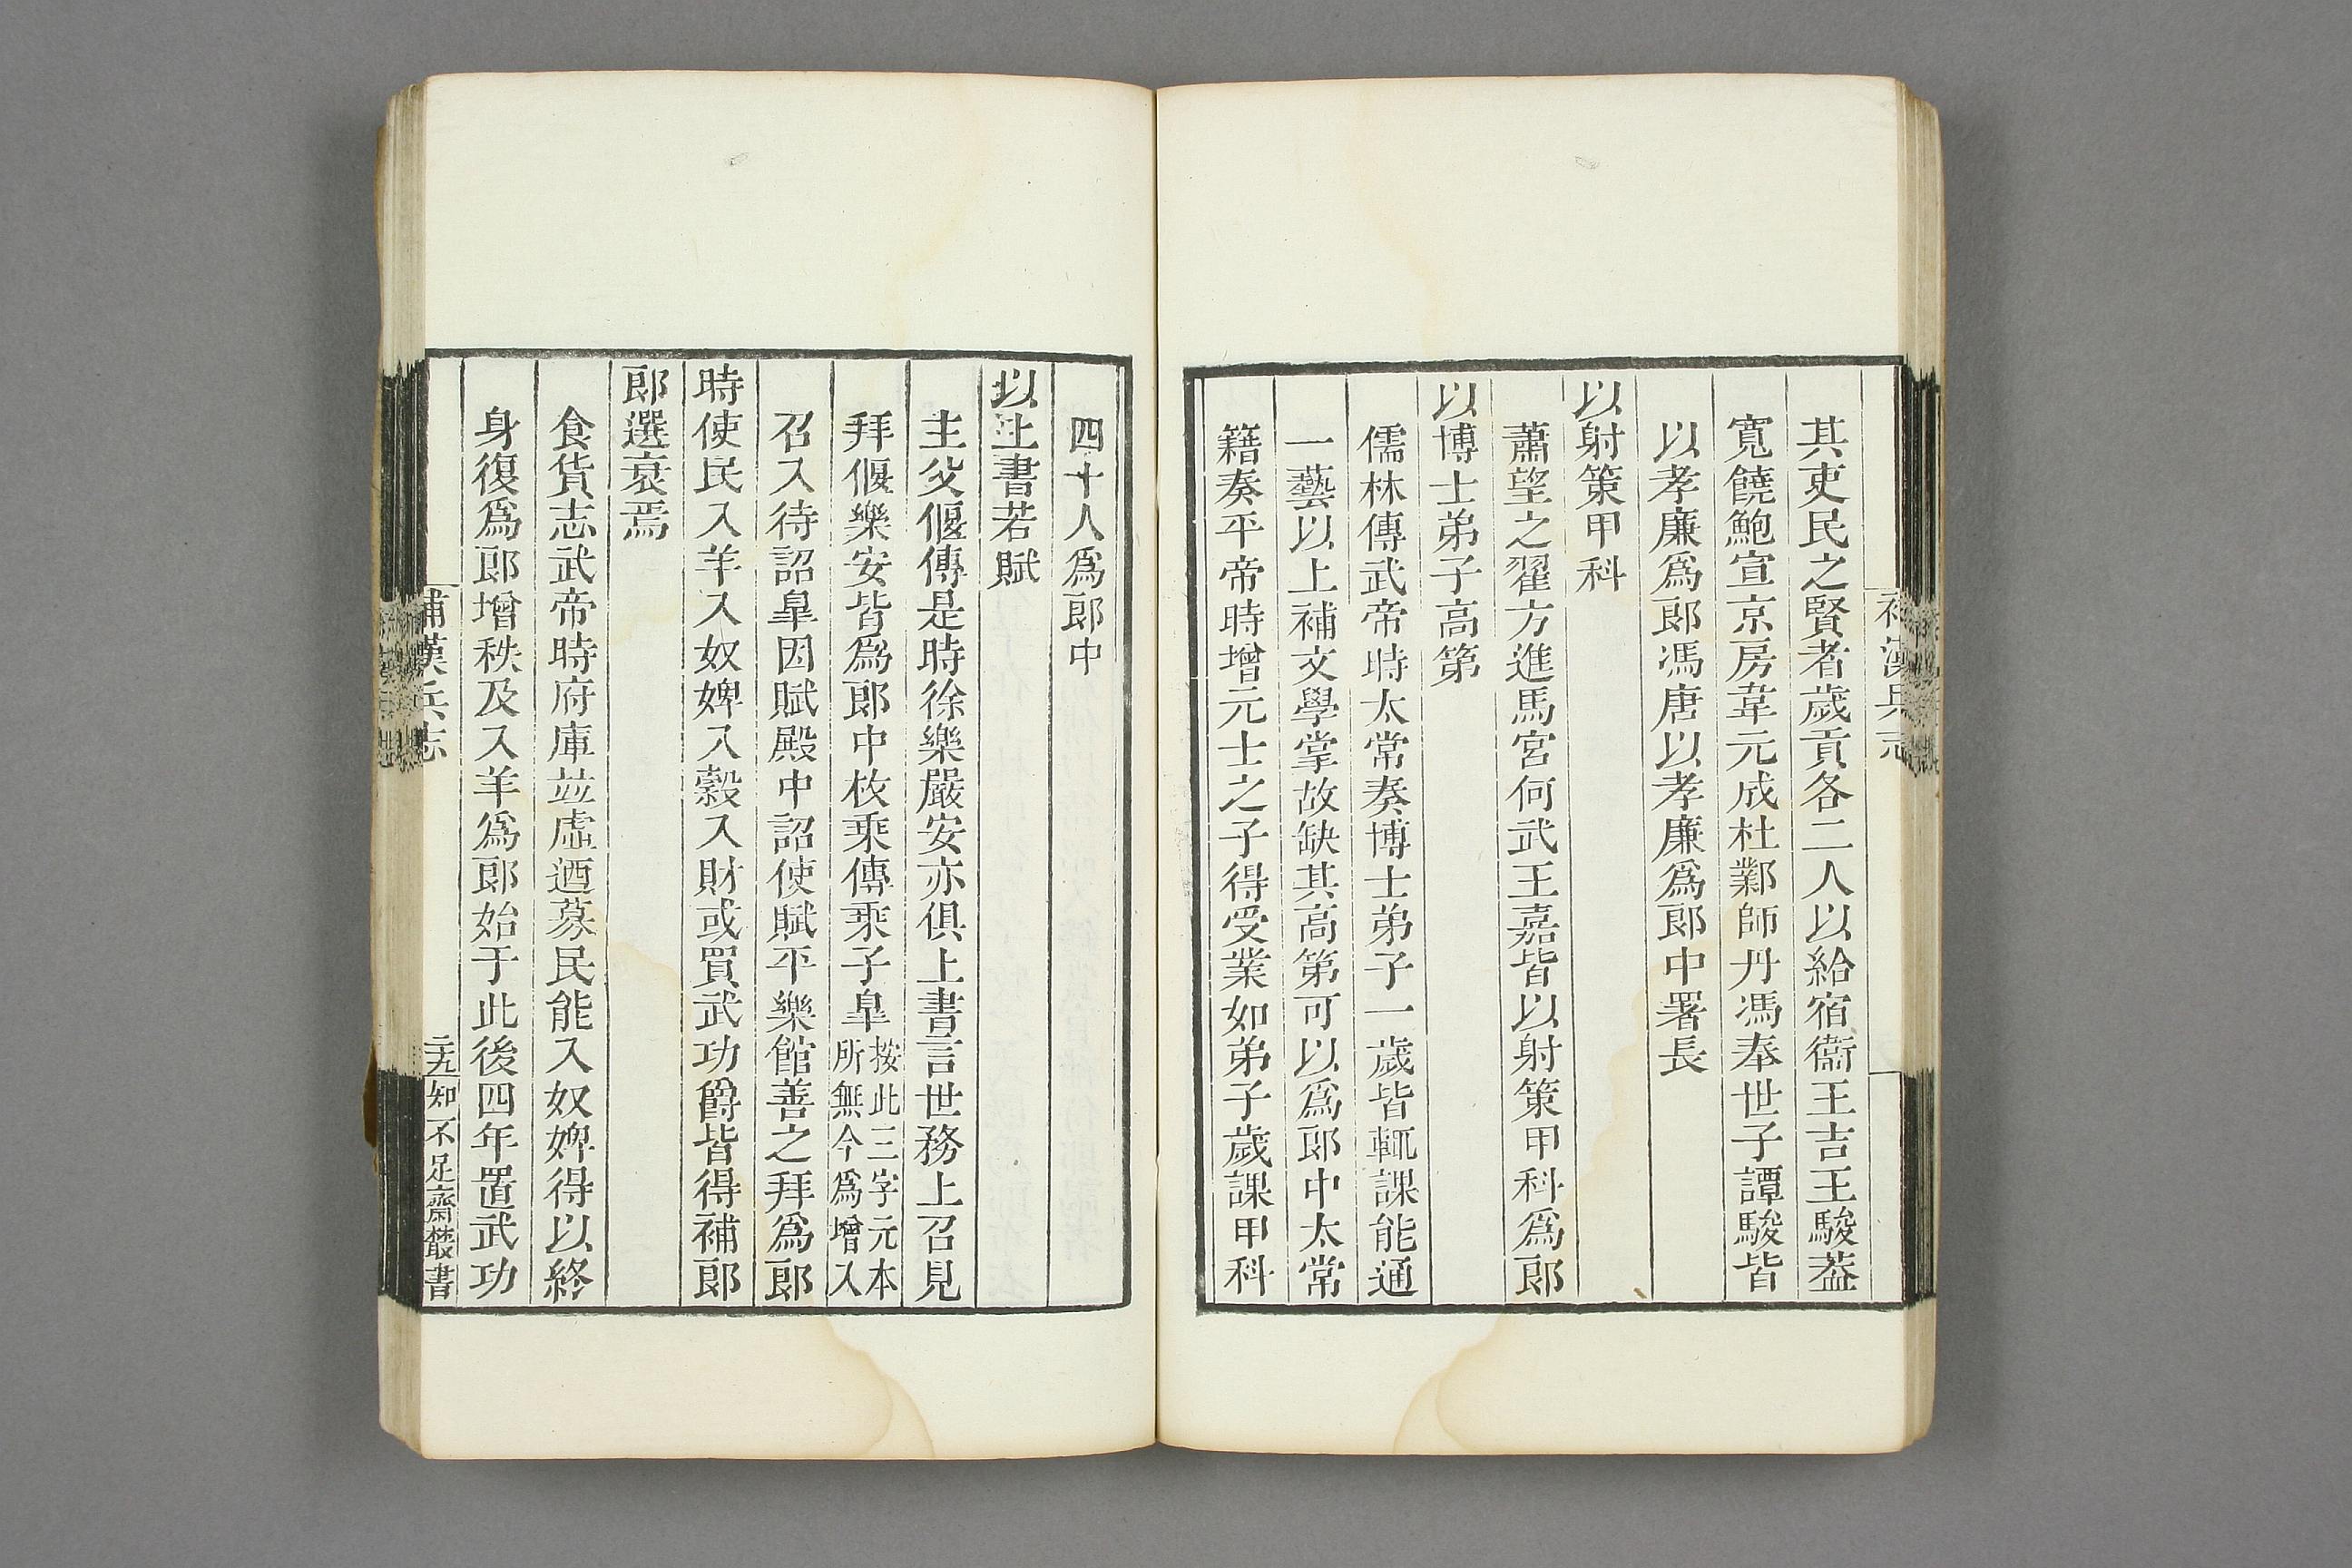 補漢兵志
其吏民之賢者歲貢各二人以給宿衞王吉王駿葢
寬饒鮑宣京房韋元成杜鄴師丹馮奉世子譚駿皆
以孝廉爲郎馮唐以孝廉爲郎中署長
以射策甲科
蕭望之翟方進馬宮何武王嘉皆以射策甲科爲郎
以博士弟子高第
儒林傳武帝時太常奏博士弟子一歲皆輒課能通
一藝以上補文學掌故缺其高第可以爲郎中太常
籍奏平帝時增元士之子得受業如弟子歲課甲科
四十人爲郎中
以上書若賦
主父偃傳是時徐樂嚴安亦俱上書言世務上召見
拜偃樂安皆爲郎中枚乘傳乘子皐按此三字元本所無今爲增入
召入待詔皐因賦殿中詔使賦平樂館善之拜爲郎
時使民入羊入奴婢入穀入財或買武功爵皆得補郎
郎選衰焉
食貨志武帝時府庫並虛迺募民能入奴婢得以終
身復爲郎增秩及入羊爲郎始于此後四年置武功
補漢兵志 二九 知不足齋叢書